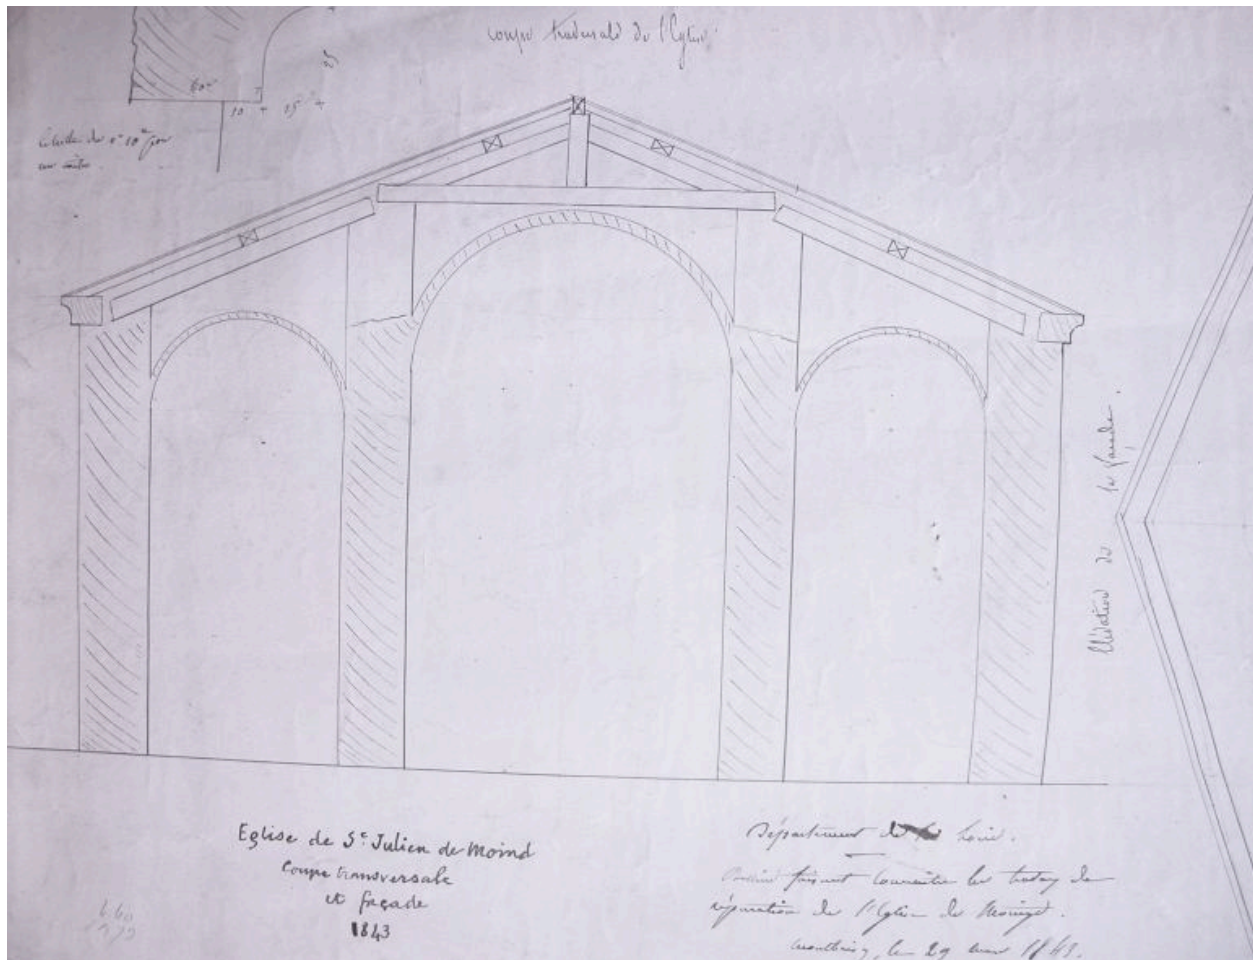 coupe transversale de l'Eglise
60c
10
15
Echelle de 0m 10c pour
un mètre
Elévation de la façade.
Eglise de St Julien de Moind
Coupe transversale
et façade
1843
Département de la Loire.
faisant connaitre les travaux de
réparation de l'Eglise de Moingt.
Montbrison, le 29 1843.